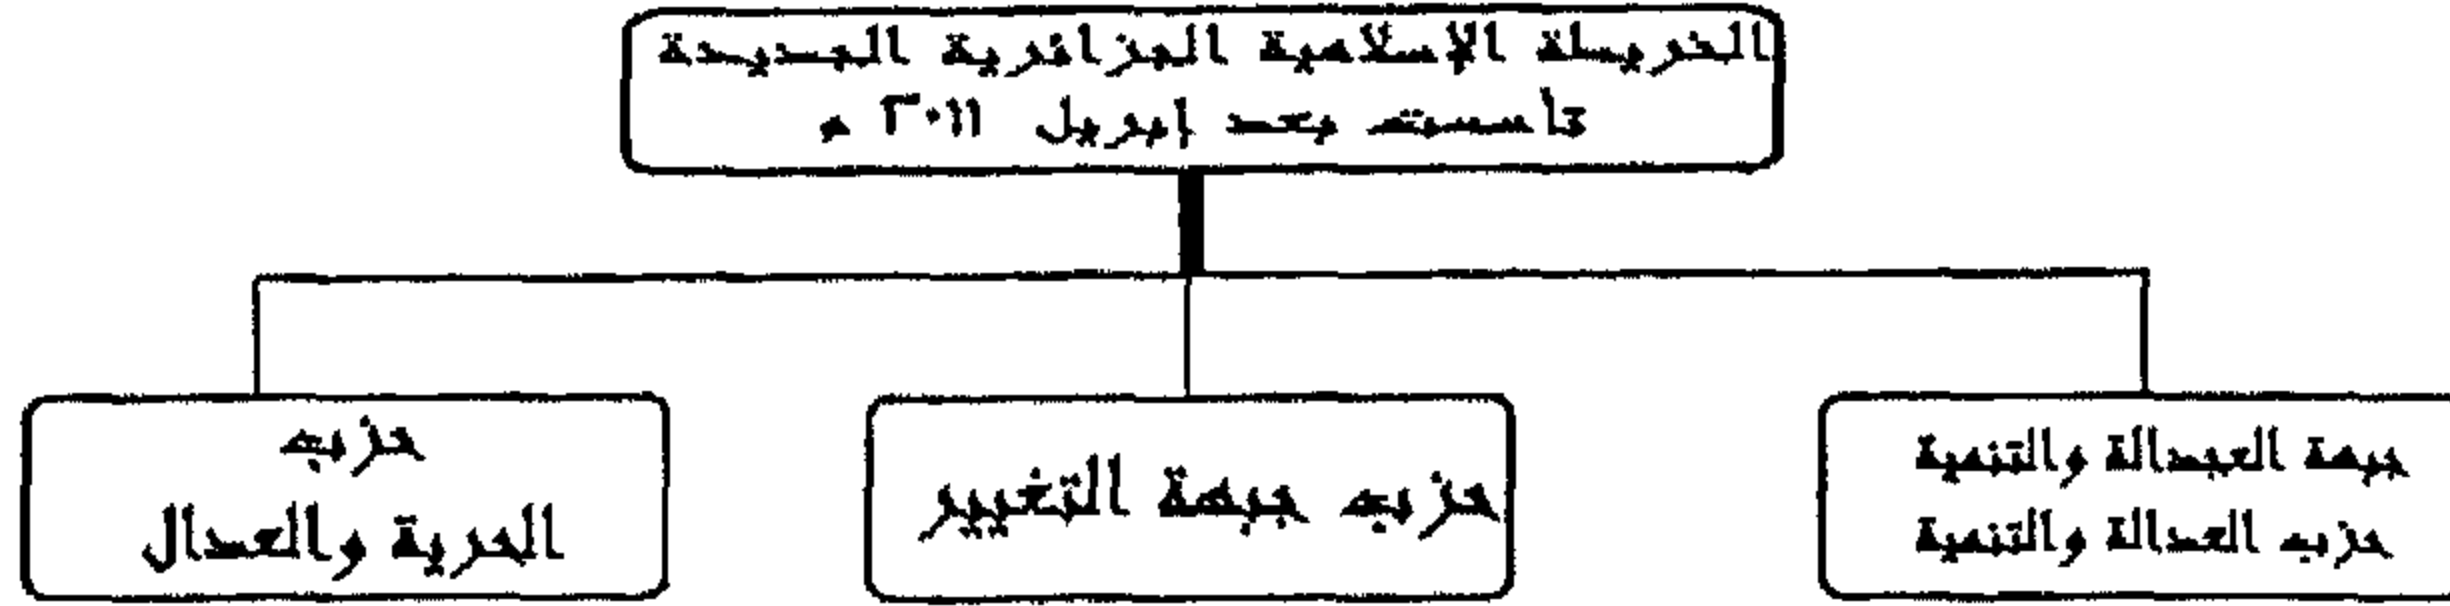 الخريطة الإسلامية الجزائرية الجديدة
تأسست بعد إبريل ٢٠١١ م
جبهة العدالة والتنمية
حزب العدالة والتنمية
حزب جبهة التغيير
حزب
الحرية والعدال